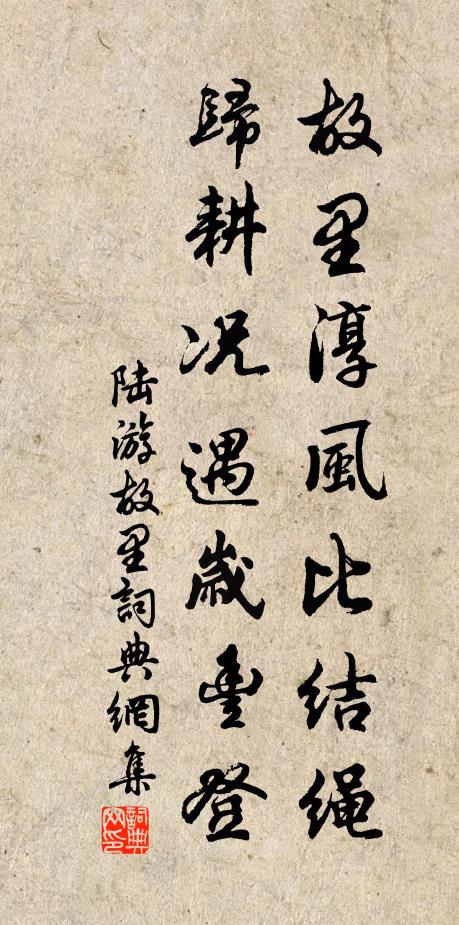 故里淳風比结绳
歸耕况遇歲豊登
陆游故里詞典網集
詞典网印